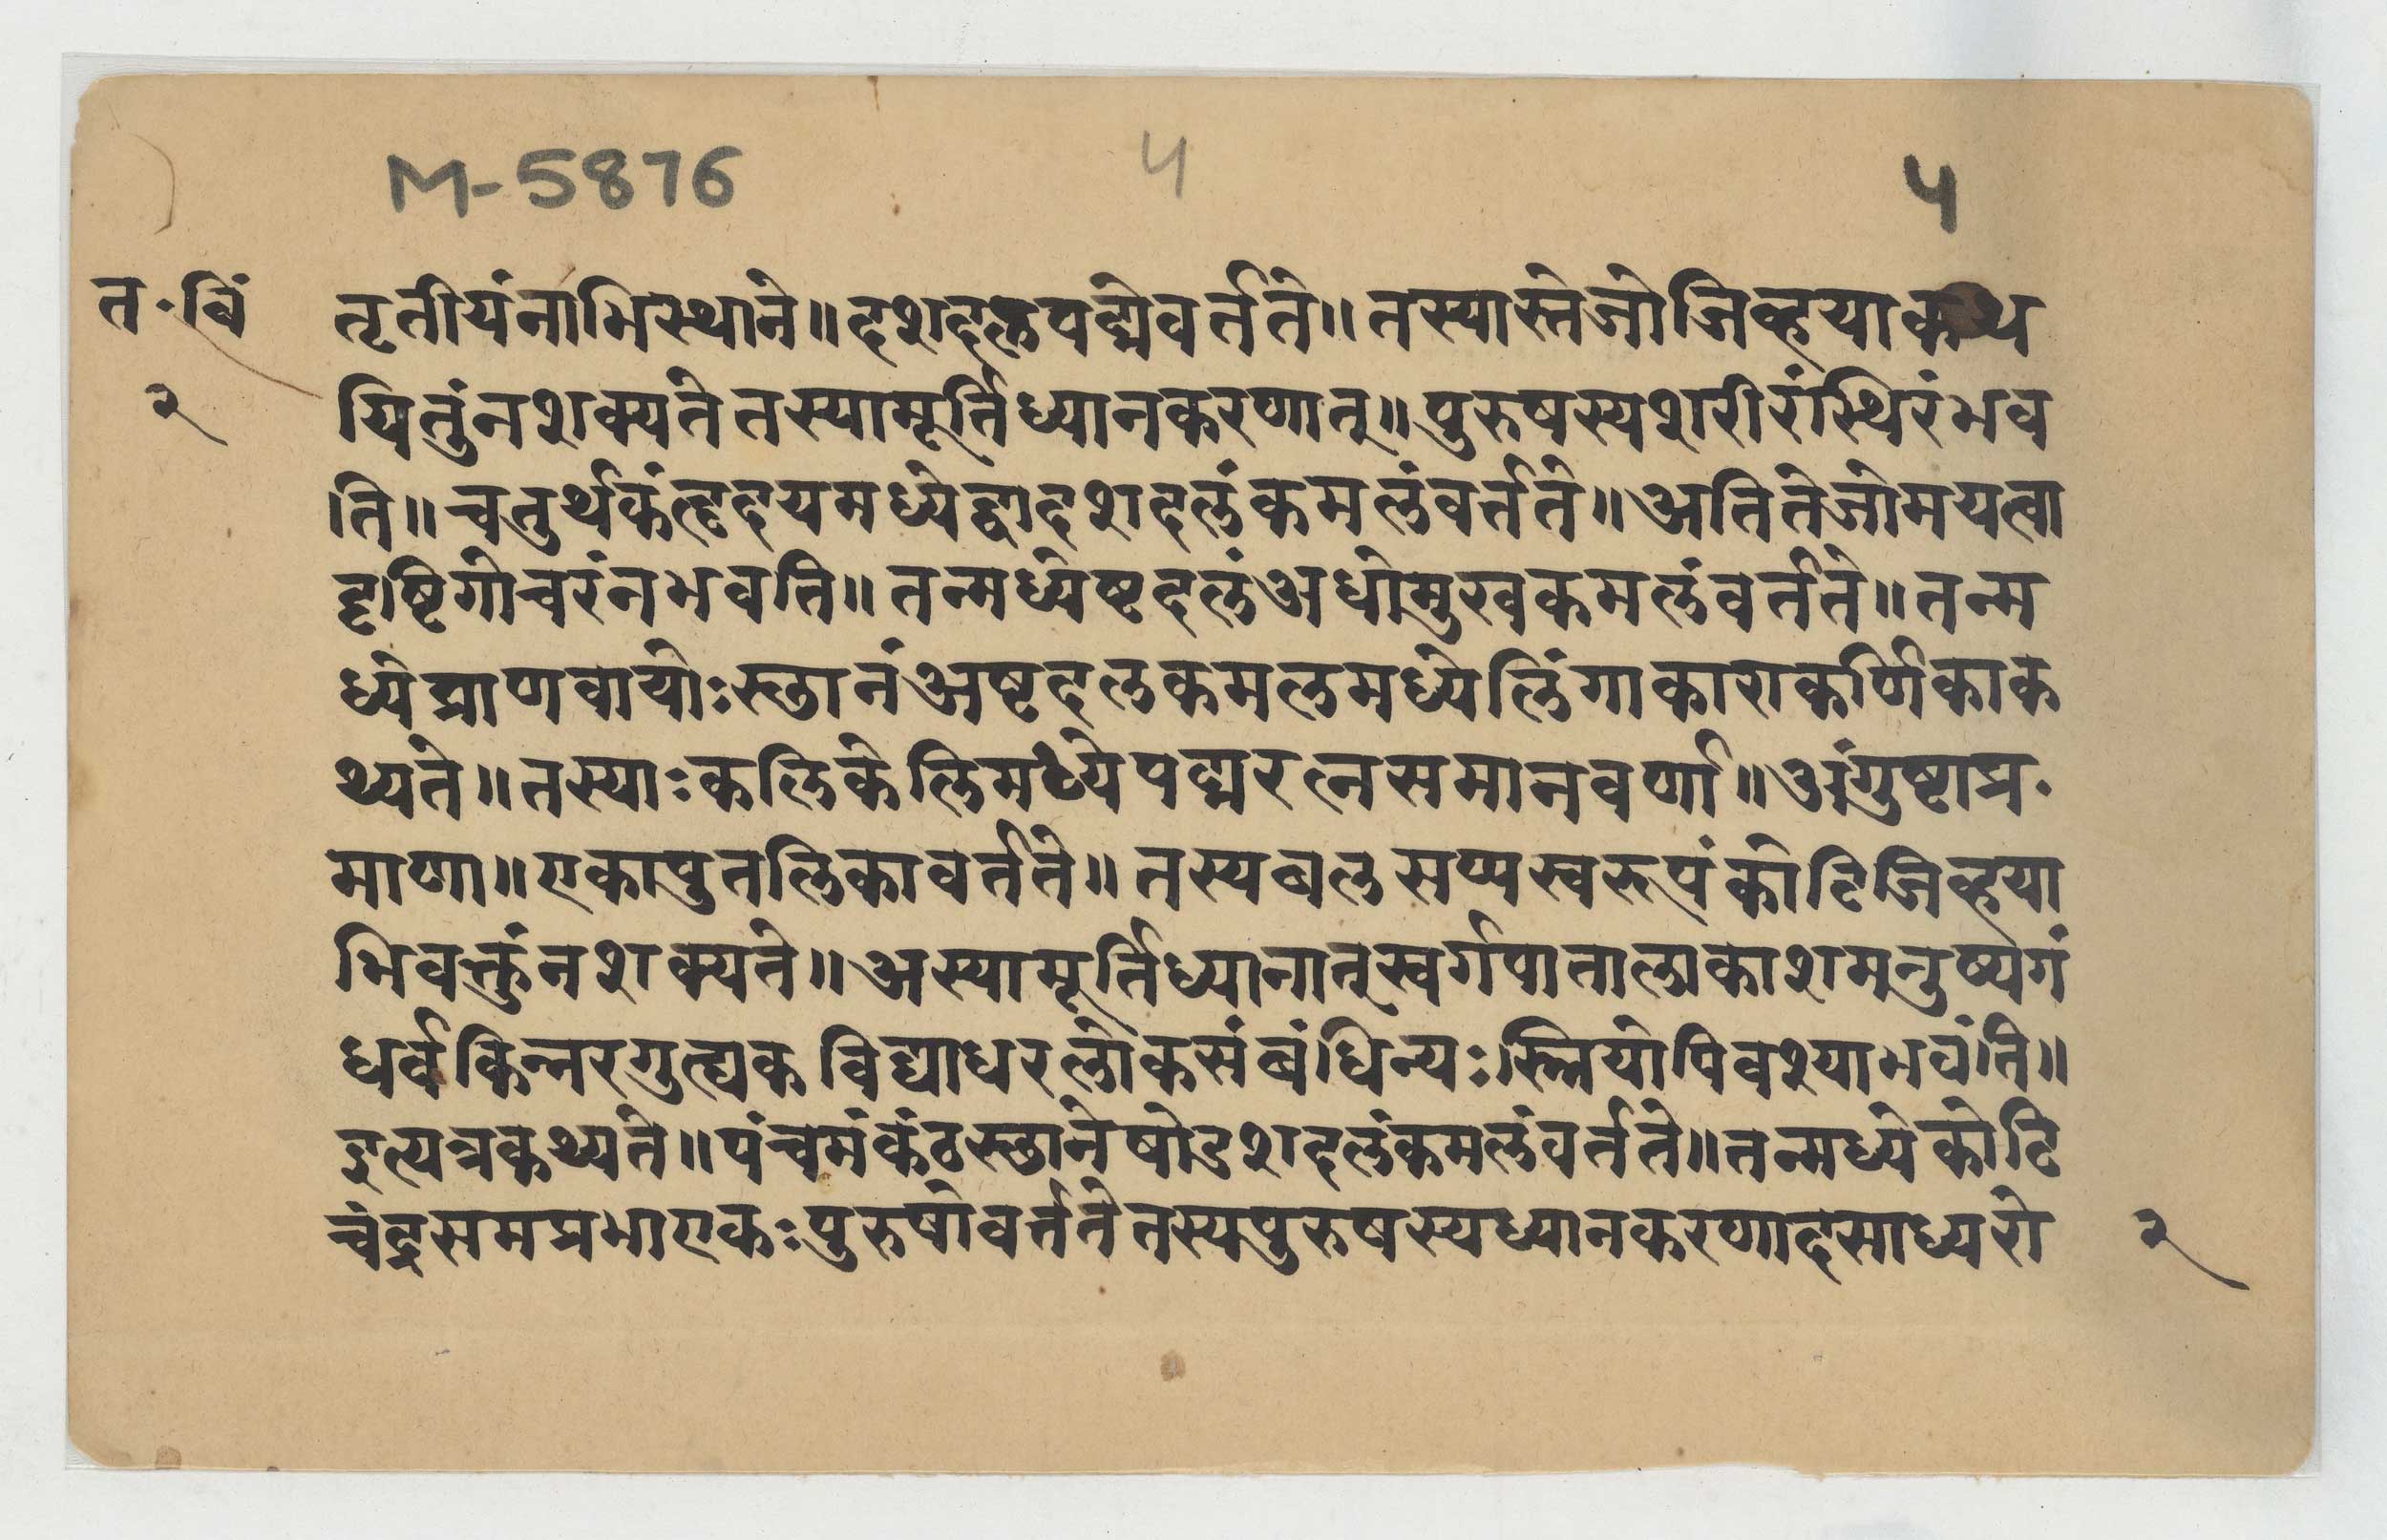 M-5876 ५ ५
त॰ विं
२
तृतीयंनाभिस्थाने॥दशदलपद्मेवर्तते॥तस्यास्तेजोजिव्हयाकथ
यितुंनशक्यतेतस्यामूर्तिध्यानकरणात्॥पुरुषस्यशरीरंस्थिरंभव
ति॥चतुर्थकंहृदयमध्येद्वादशदलंकमलंवर्त्तते॥अतितेजोमयत्वा
दृष्टिगोचरंनभवति॥तन्मध्येष्टदलंअधोमुखकमलंवर्तते॥तन्म
ध्येप्राणवायोःस्छानंअष्टदलकमलमध्येलिंगाकाराकर्णिकाक
थ्यते॥तस्याःकलिकेलिमध्येपद्मरत्नसमानवर्णा॥अंगुष्टाप्र॰
माणा॥एकापुतलिकावर्तते॥तस्यबलसप्यस्वरूपंकोटिजिव्हया
भिवक्तुंनशक्यते॥अस्यामूर्तिध्यानात्स्वर्गपातालाकाशमनुष्यगं
धर्वकिन्नरगुह्यकविद्याधरलोकसंबंधिन्यःस्त्रियोपिवश्याभवंति॥
इत्यत्रकथ्यते॥पंचमंकंठस्छानेषोडशदलंकमलंवर्तते॥तन्मध्येकोटि
चंद्रसमप्रभाएकःपुरुषोवर्त्ततेतस्यपुरुषस्यध्यानकरणादसाध्यरो
२